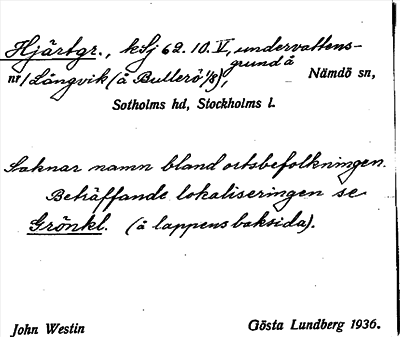 Hjärtgr., kfj 62. 10. V, undervattens-
grund å
nr/Långvik (å Bullerö 1/8), Nämdö sn,
Sotholms hd, Stockholms l.
Saknar namn bland ortsbefolkningen.
Beträffande lokaliseringen se
Grönkl. (å lappens baksida).
John Westin Gösta Lundberg 1936.